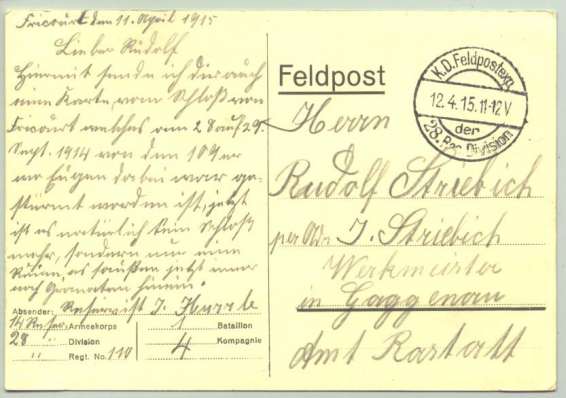 Fricourt den 11. April 1915
Lieber Rudolf
Hiermit sende ich dir auch
eine Karte vom Schloß von
Fricourt welches vom 28 auf 29.
Sept. 1914 von den 109er
wo Eugen dabei war ge-
stürmt worden ist, jetzt
ist es natürlich kein Schloß
mehr, sondern nur eine
Ruine, es sausen jetzt immer
noch Granaten hinein.
Absender: Reservist J.
14 Res. Armeekorps
28 " Division
" Regt. No. 110
1 Bataillon
4 Kompagnie
Feldpost
K.D. Feldpostexp.
12.4.15.11-12V
der
28. Res. Division
Herrn
Rudolf Striebich
per Adr. J. Striebich
Werkmeister
in Gaggenau
Amt Rastatt